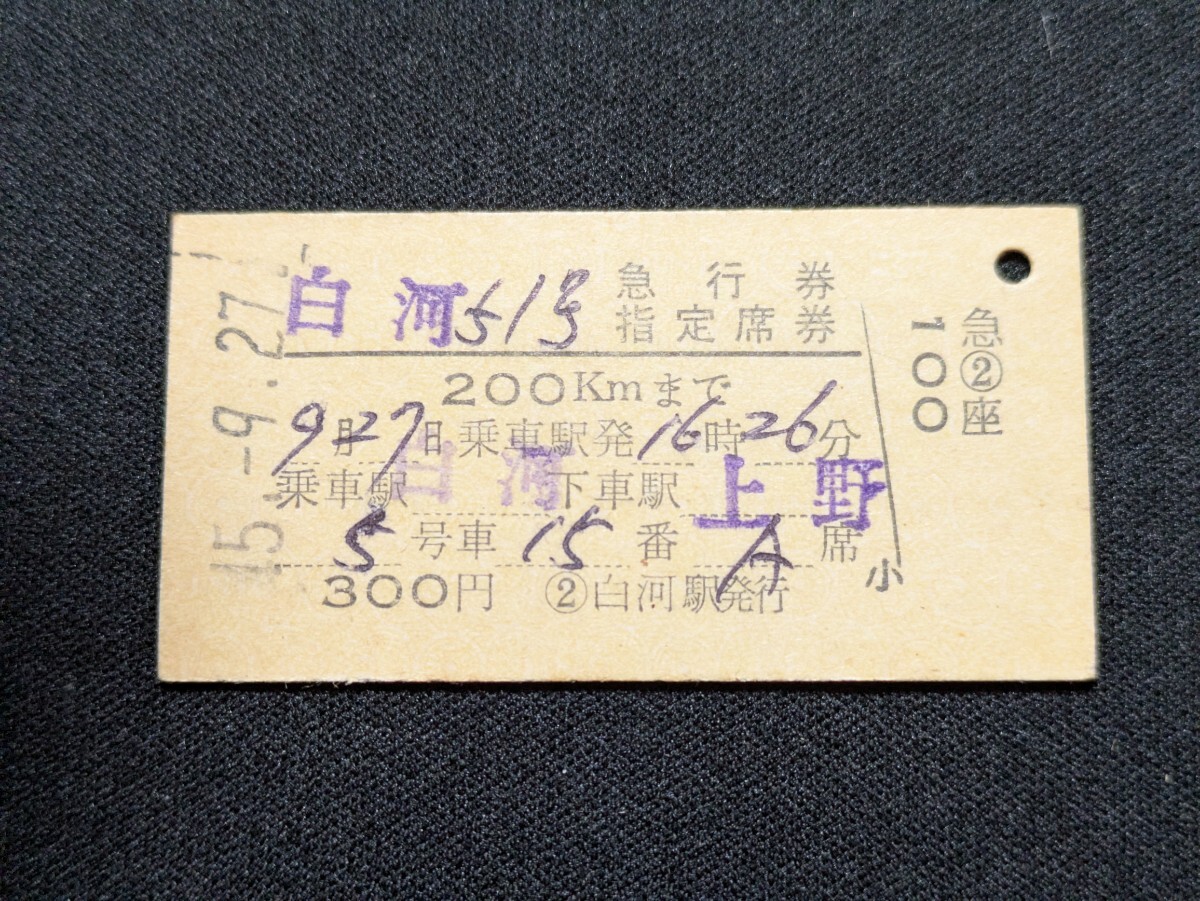 45.-9.27
白河51号 急行券
指定席券
200Kmまで
9月27日乗車駅発16時26分
乗車駅 白河 下車駅 上野
5号車15番A席
300円 ②白河駅発行
小
急②座
100